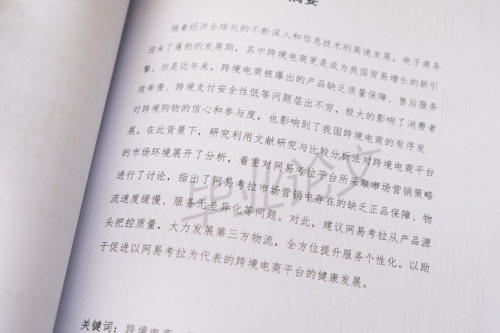 摘要
随着经济全球化的不断深入和信息技术的高速发展，电子商务
迎来了蓬勃的发展期，其中跨境电商更是成为我国贸易增长的新引
擎。但是近年来，跨境电商被爆出的产品缺乏质量保障、售后服务
效率慢、跨境支付安全性低等问题层出不穷，极大的影响了消费者
对跨境购物的信心和参与度，也影响到了我国跨境电商的有序发
展。在此背景下，研究利用文献研究与比较分析法对跨境电商平台
的市场环境展开了分析，着重对网易考拉平台所采取市场营销策略
进行了讨论，指出了网易考拉市场营销中存在的缺乏正品保障、物
流速度缓慢、服务无差异化等问题。对此，建议网易考拉从产品源
头把控质量，大力发展第三方物流，全方位提升服务个性化。以助
于促进以网易考拉为代表的跨境电商平台的健康发展。
关键词：跨境电商
毕业论文